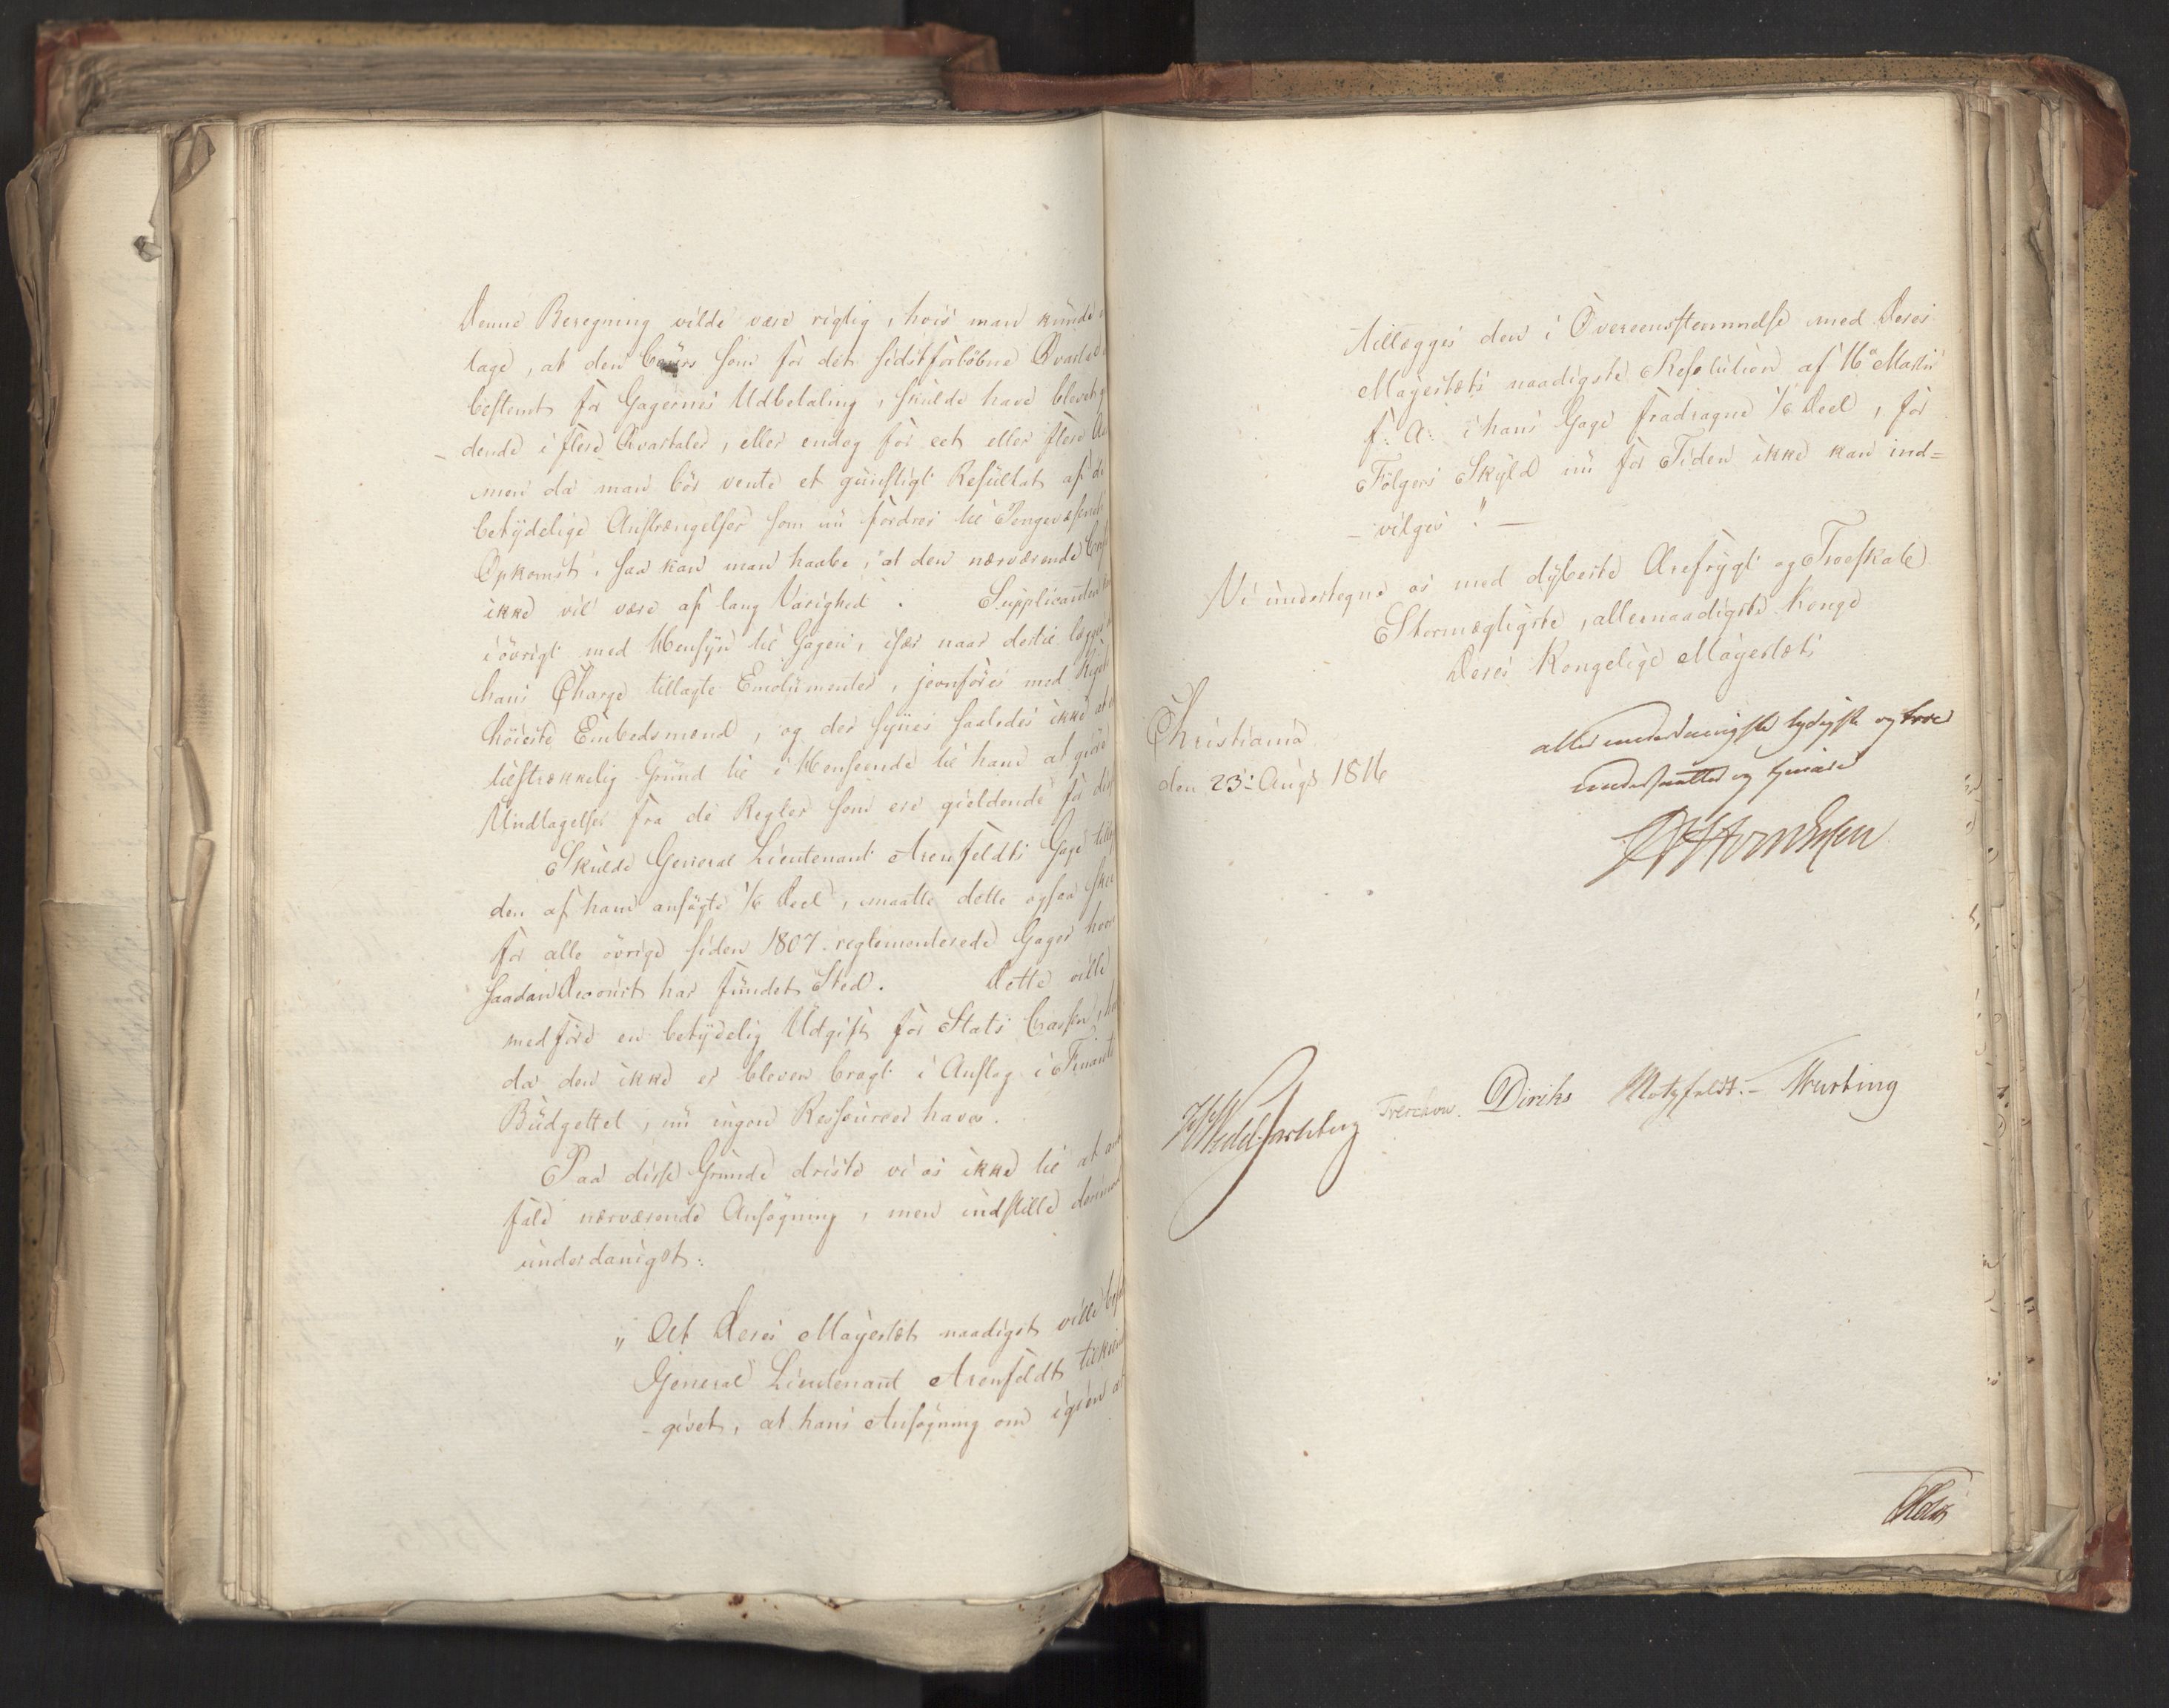 Denne Beregning vilde være rigtig, hvis man kunde
tage, at den Cours som for det sidstforløbne Qvartal
bestemt for Gagernes Udbetaling, skulde have blevet
dende i flere Qvartaler, eller endog for eet eller flere
men da man bør vente et gunstigt Resultat af de
betydelige Anstrængelser som nu fordres til Pengevæsenets
Opkomst, saa kan man haabe, at den nærværende
ikke vil være af lang Varighed. Supplicanten
iøvrigt med Hensyn til Gagen, især naar dertil lægges
hans Charge tillagte Emolumenter, jevnføres med
høieste Embedsmænd, og der synes saaledes ikke at
tilstrækkelig Grund til i Henseende til ham at giøre
Undtagelse fra de Regler som ere gieldende for
Skulde General Lieutenant Arenfeldts Gage
den af ham ansøgte 1/6 Deel, maatte dette ogsaa skee
for alle øvrige siden 1807 reglementerede Gager hvor
saadan Decourt har fundet Sted. Dette vilde
medføre en betydelig Udgift for Stats Cassen,
da den ikke er bleven bragt i Anslag i Finants
Budgettet, nu ingen Ressourcer haves.
Paa disse Grunde driste vi os ikke til at
fale nærværende Ansøgning, men indstille derimod
underdanigst:
„At Deres Majestæt naadigst ville
General Lieutenant Arenfeldt
- givet, at hans Ansøgning om igien at
tillægges den i Overeensstemmelse med Deres
Majestæts naadigste Resolution af 16de Martii
f: A: i hans Gage fradragne 1/6 Deel, for
Følgers Skyld nu for Tiden ikke kan ind=
- vilges." —
Vi undertegne os med dybeste Ærefrygt og Troeskab
Stormægtigste, allernaadigste Konge
Deres Kongelige Majestæts
Christiania
den 23: Aug: 1816
allerunderdanigste lydigste og troe
undersaatter og tjenere
HWedel Jarlsberg Treschow. Diriks Motzfeldt.- Krebting